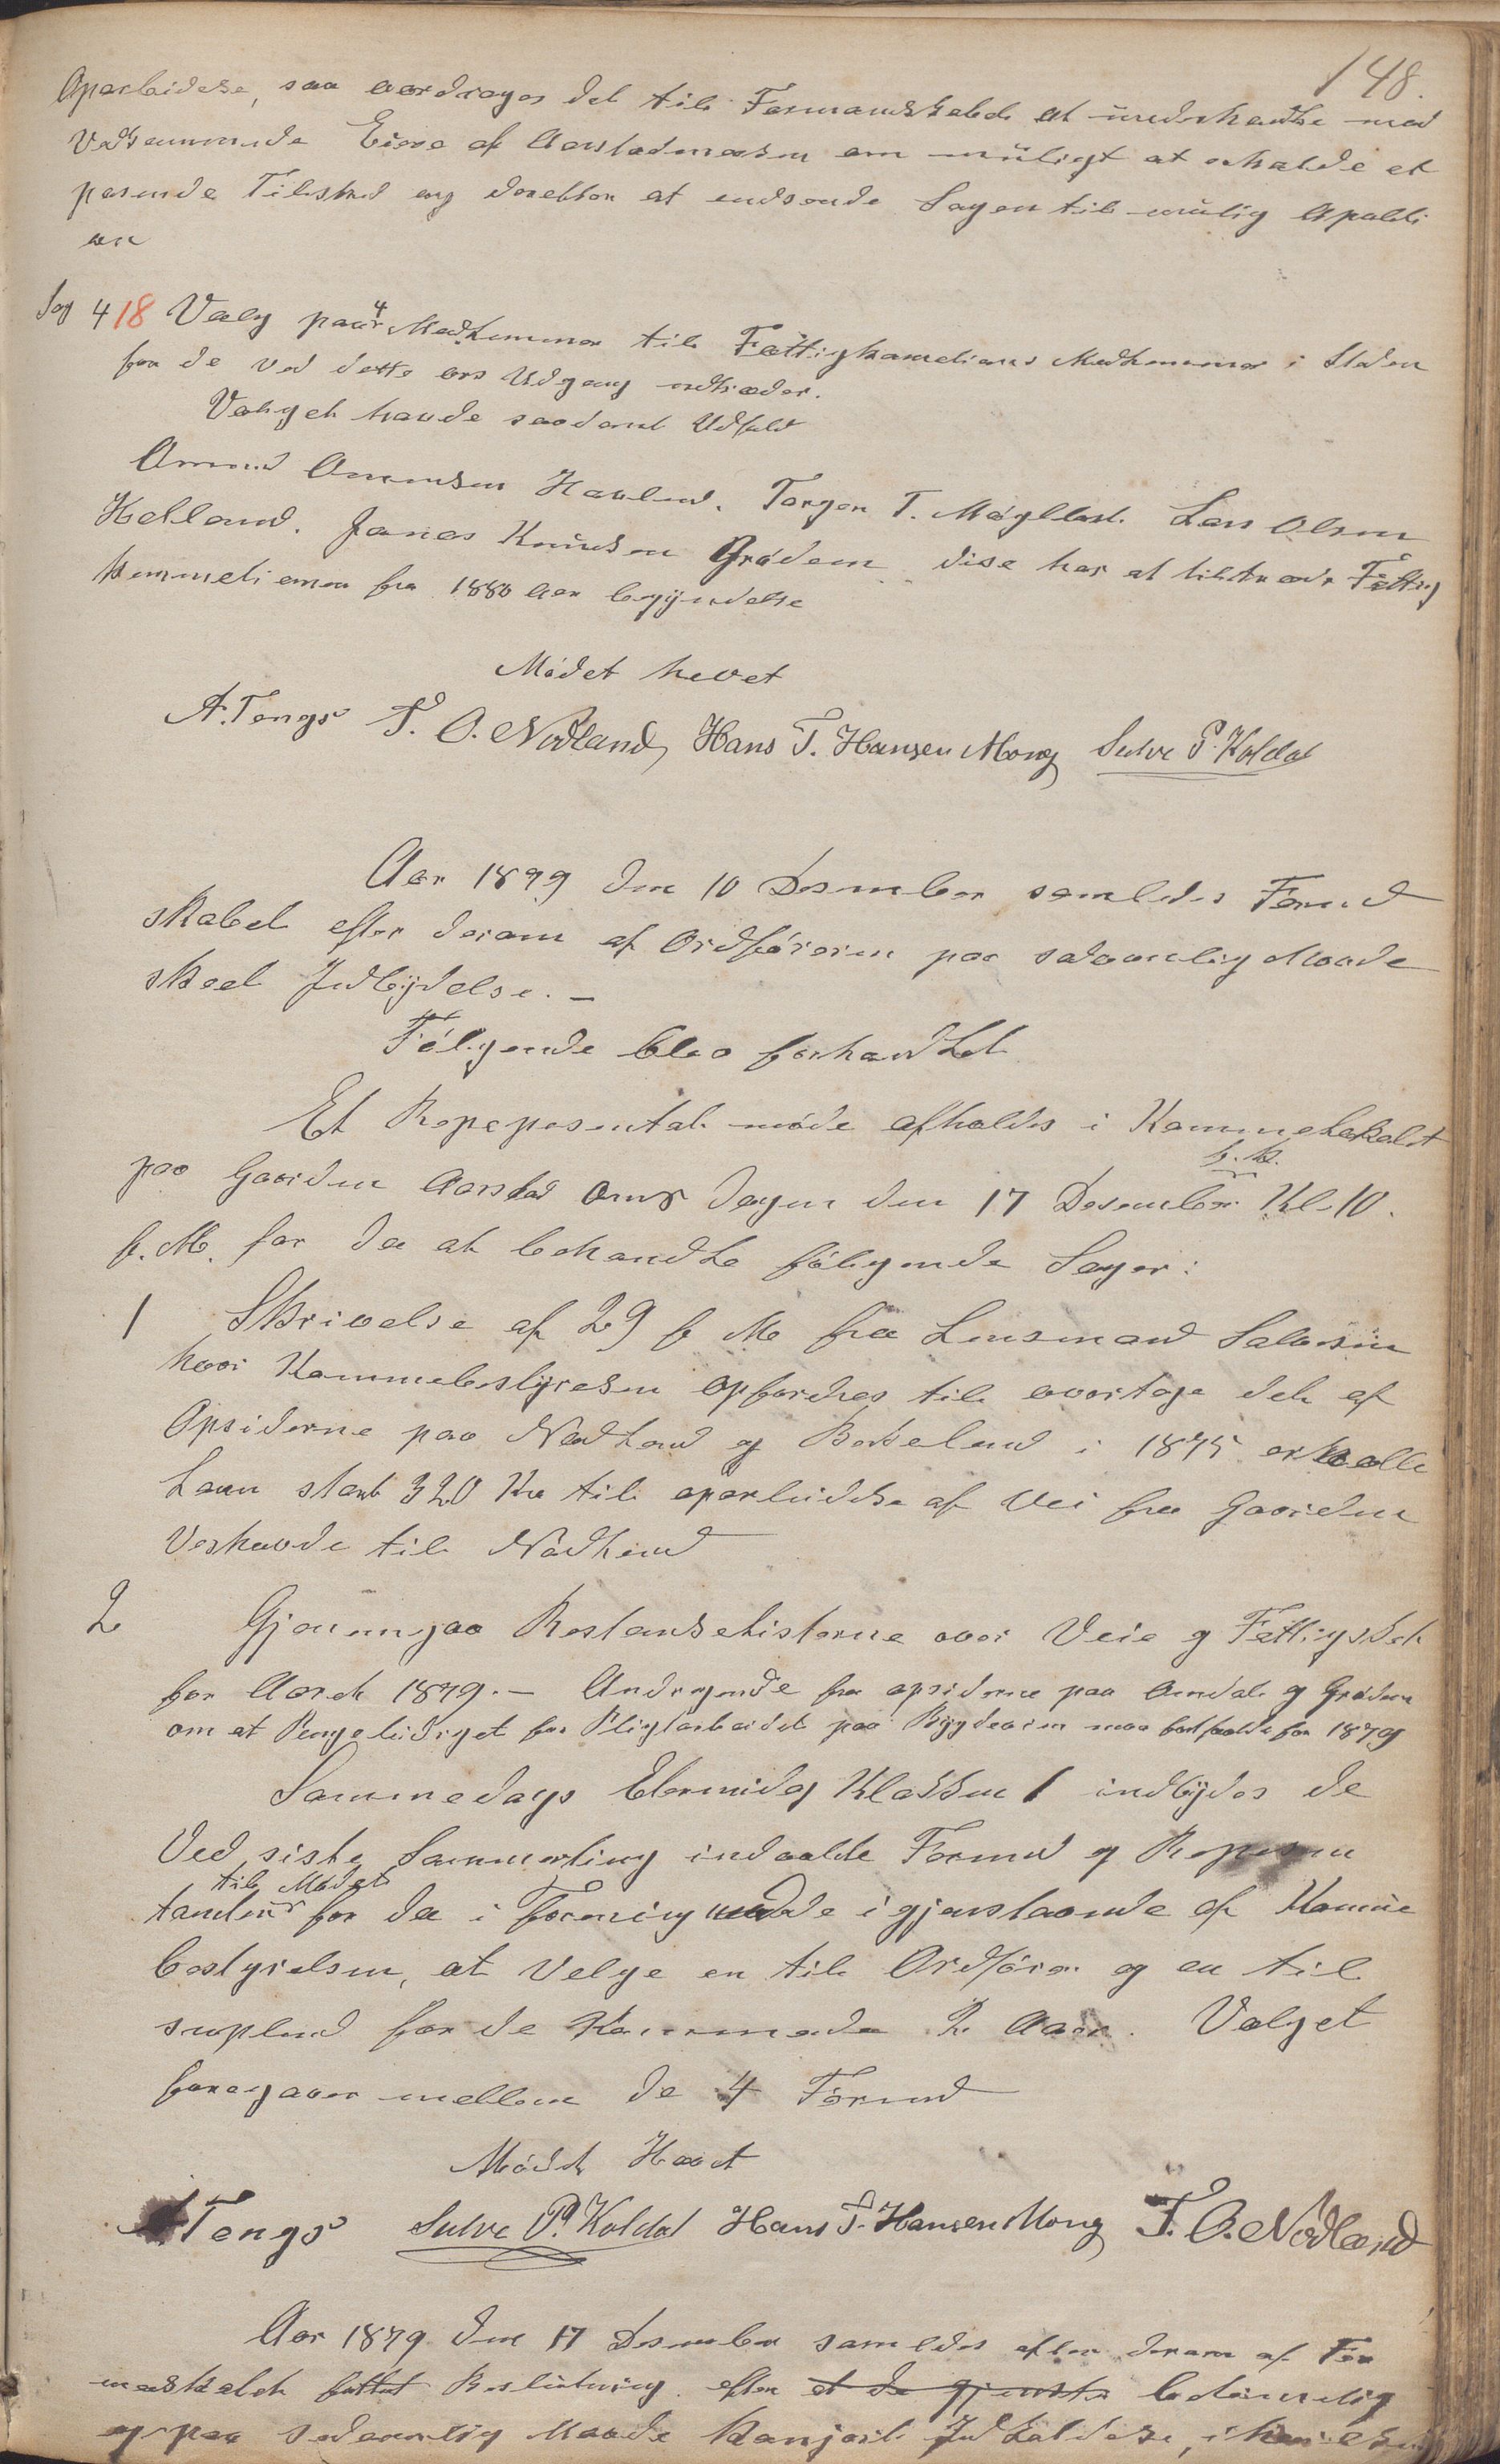 148.
Oparbeidelse, saa overdrages det til Formandskabet at underhandle med
Vedkommende Eiere af Aarstadmarken om muligt at erholde et
pasende Tilskud og derefter at indsende Sagen til mulig Apalti
on
Sag 4 18 Valg paa 4 Medlemmer til Fattigkomelions Medlemmer i Steden
for de ved dette ars Udgang udtræder.
Valget havde saadant Udfald
Omund Omundsen Havland. Torger T. Møgllest. Lars Olsen
Helland. Jonas Knudsen Grødem disse har at tiltræde Fattig
kommelionen fra 1880 Aars begyndelse
Mødet hevet
A. Tengs T. O. Nodland, Hans T. Hansen Mong Sulve P. Koldal
Aar 1879 den 10 Desember samledes Formd
skabet efter derom af Ordføreren paa sedvanlig Maade
skeet Indbydelse. —
Følgende blev forhandlet
Et Repepesentat møde afholdes i Kommelokalet
paa Gaarden Aarstad Onsdagen den 17 Desember Kl 10.
f. M. for da at behandle følgende Sager:
1 Skrivelse af 29 f M fra Lensmand Salvesen
hvor Kommebestyrelsen opfordres til overtage det af
Opsiderne paa Nodland og Birkeland i 1875 erholdte
Laan stort 320 Kr til oparbeidelse af Vei fra Gaarden
Veshovde til Nodland
2 Gjennemgaa Restanselisterne over Veie og Fattigskat
for Aaret 1879. — Andragende fra opsiderne paa Omdal og Grødem
om at Pengebidraget for Pligtarbeidet paa Bygdeveien maa bortfalde for 1879
Sammedags Eftermidag Klokken 1 indbydes de
Ved siste Sammenting indvalde Formd og Represen
til Mødet
tanter for da i Forening med de igjenstaaende af Komme
bestyrelsen, at Velge en til Ordfører og en til
supleand for de Kommende 2 Aar. Valget
foregaar mellem de 4 Formd
Mødet Hævet
A Tengs Sulve P. Koldal Hans T. Hansen Mong T. O. Nodland
Aar 1879 den 17 Desember samledes efter derom af For
mandskabet fattet Beslutning efter et de gjenste betimelig
og paa sedvanlig Maade kungjort Indkaldelse,